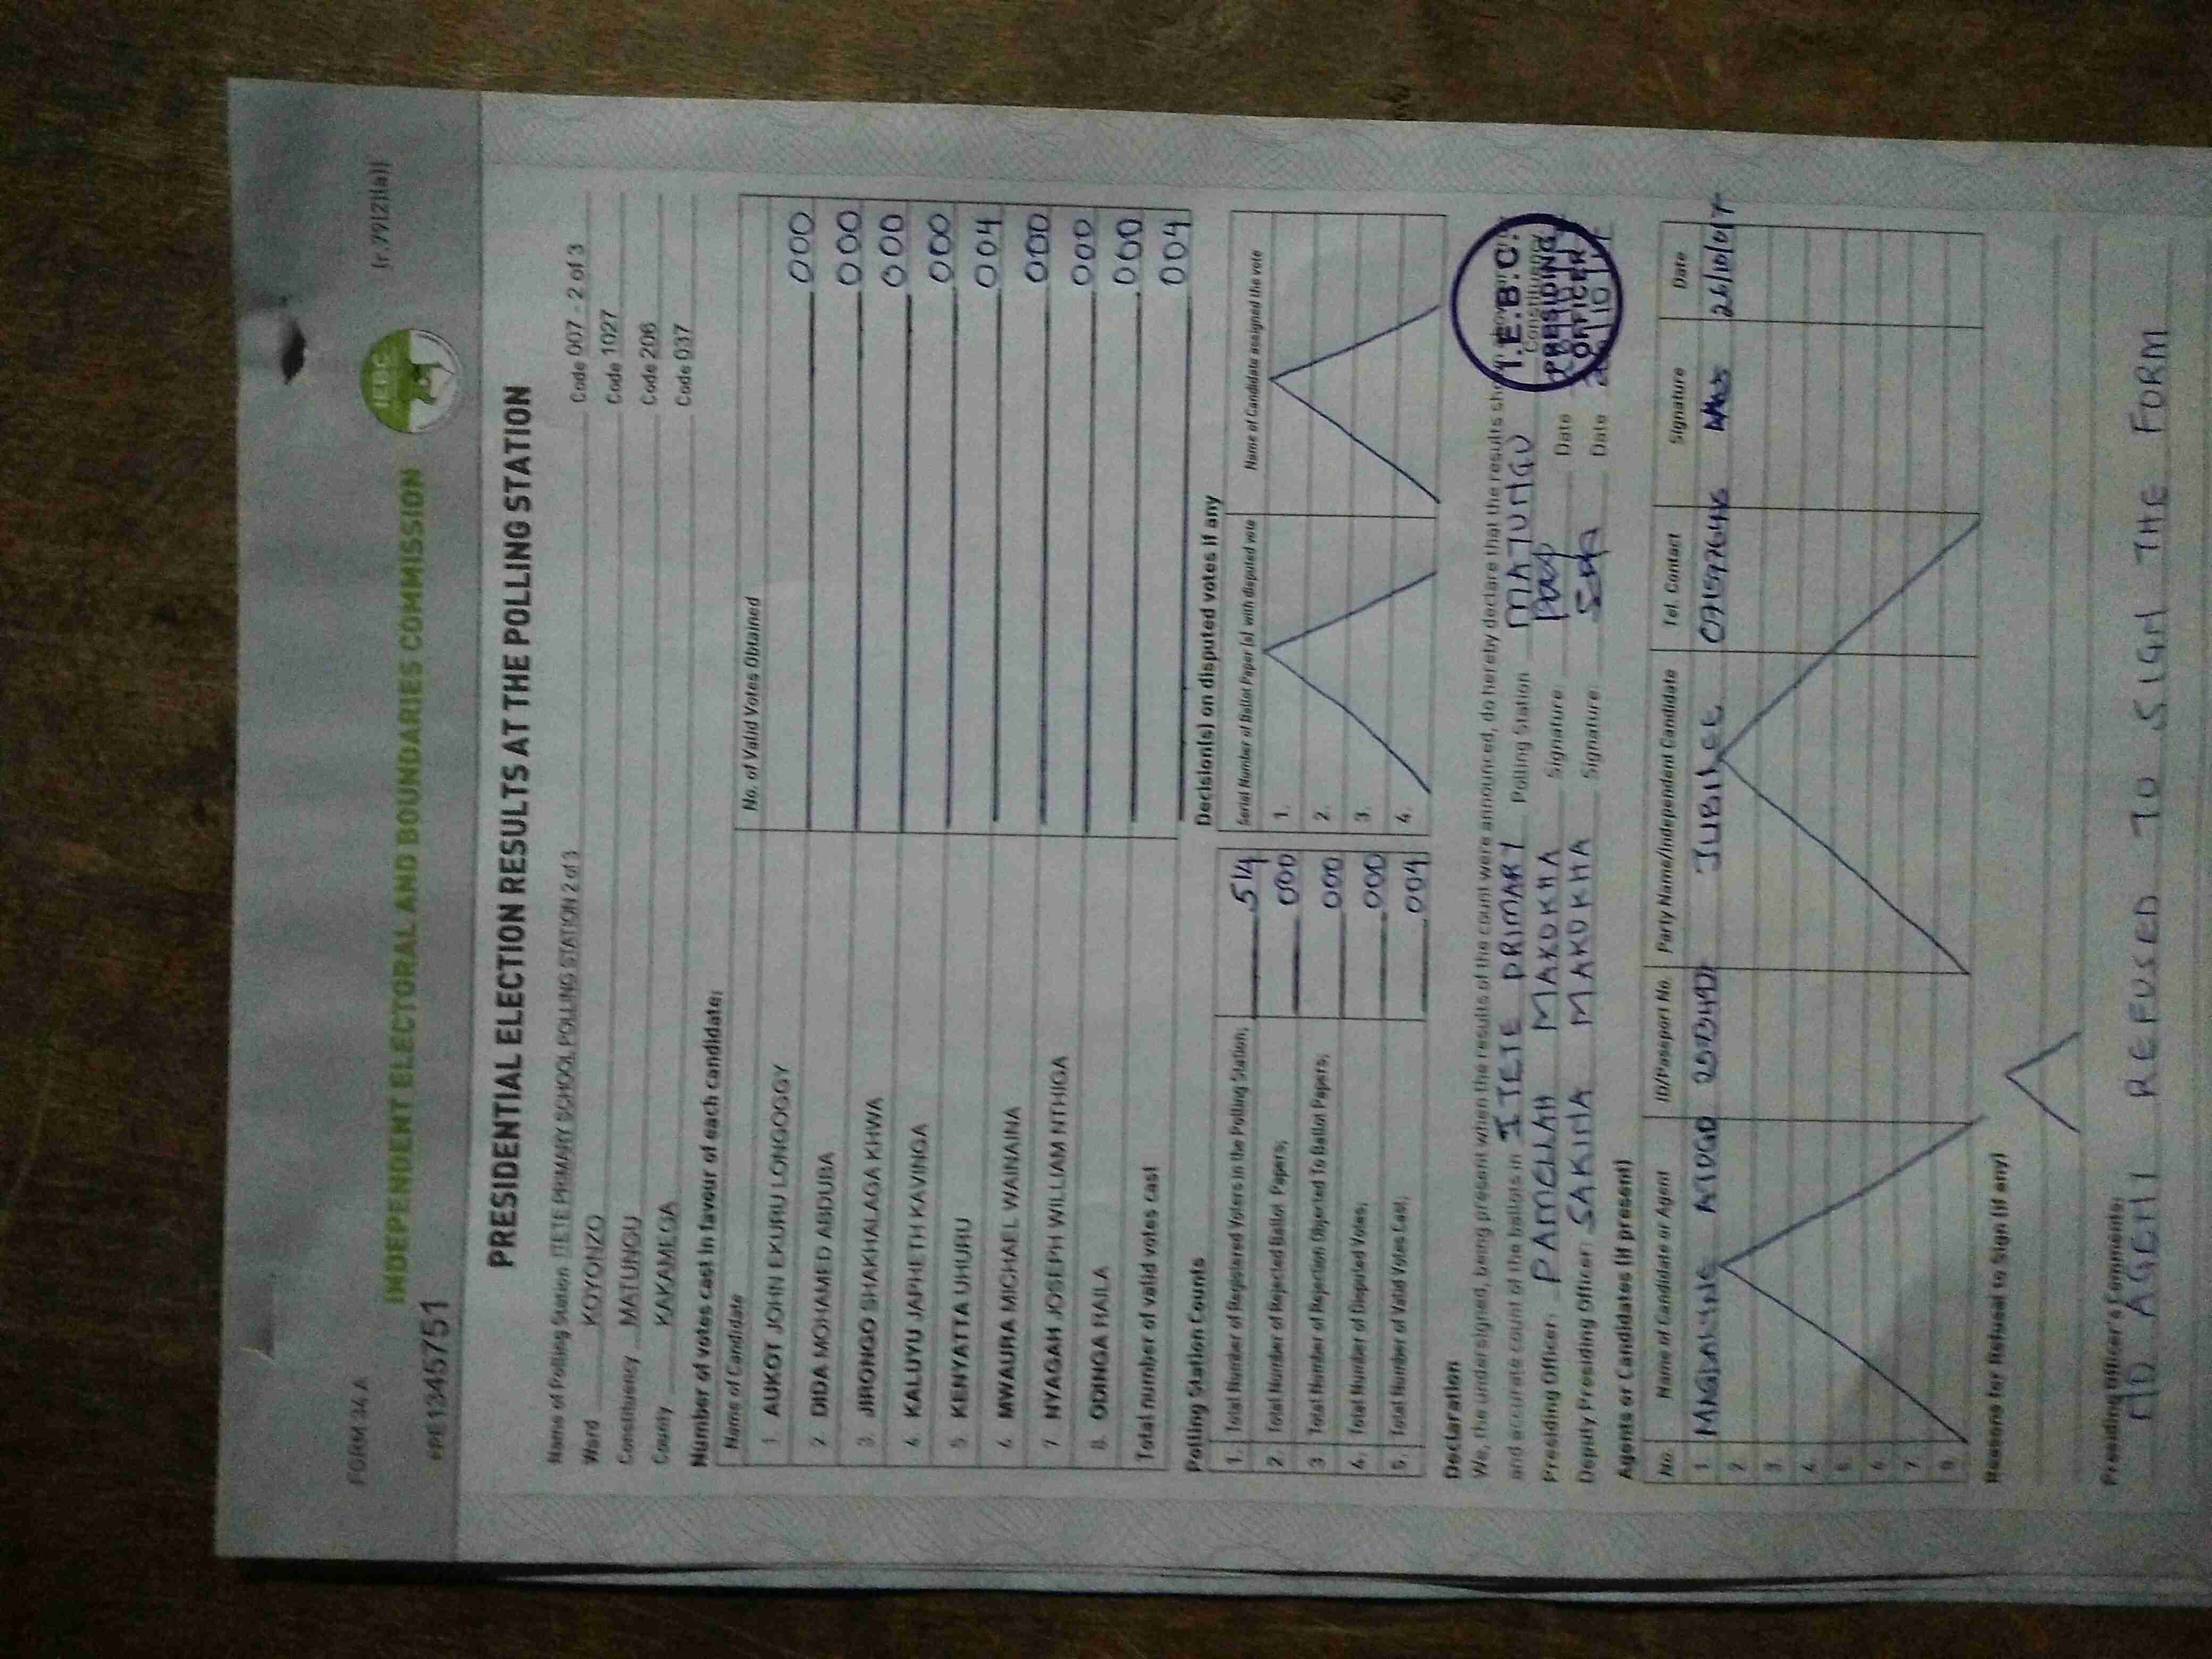 FORM 34 A
(r.79(2)(a))
INDEPENDENT ELECTORAL AND BOUNDARIES COMMISSION
IEBC
PRESIDENTIAL ELECTION RESULTS AT THE POLLING STATION
Name of Polling Station ITETE PRIMARY SCHOOL POLLING STATION 2 of 3 Code 007 - 2 of 3
Ward KOYONZO Code 1027
Constituency MATUNGU Code 206
County KAKAMEGA Code 037
Number of votes cast in favour of each candidate:
Name of Candidate No. of Valid Votes Obtained
1 AUKOT JOHN EKURU LONGOGGY 000
2 DIDA MOHAMED ABDUBA 000
3. JIRONGO SHAKHALAGA KHWA 000
4 KALUYU JAPHETH KAVINGA 000
5 KENYATTA UHURU 004
6 MWAURA MICHAEL WAINAINA 000
7. NYAGAH JOSEPH WILLIAM NTHIGA 000
8. ODINGA RAILA 000
Total number of valid votes cast 004
Polling Station Counts
1. Total Number of Registered Voters in the Polling Station; 514
2. Total Number of Rejected Ballot Papers; 000
3 Total Number of Rejection Objected To Ballot Papers; 000
4. Total Number of Disputed Votes; 000
5. Total Number of Valid Votes Cast; 004
Decision(s) on disputed votes if any
Serial Number of Ballot Paper (s) with disputed vote Name of Candidate assigned the vote
1.
2.
3.
4.
Declaration
We, the undersigned, being present when the results of the count were announced, do hereby declare that the results
and accurate count of the ballots in ITETE PRIMARY Polling Station MATUNGU Constituency
Presiding Officer: PAMELAH MAKOKHA Signature: Date
Deputy Presiding Officer: SAKINA MAKOKHA Signature: Date
I.E.B.C.
PRESIDING
OFFICER
Agents or Candidates (if present)
No. Name of Candidate or Agent ID/Passport No Party Name/Independent Candidate Tel. Contact Signature Date
1 JUBILEE
2
3
4
5
6
7
8
Reasons for Refusal to Sign (if any)
Presiding Officer's Comments:
NO AGENT REFUSED TO SIGN THE FORM